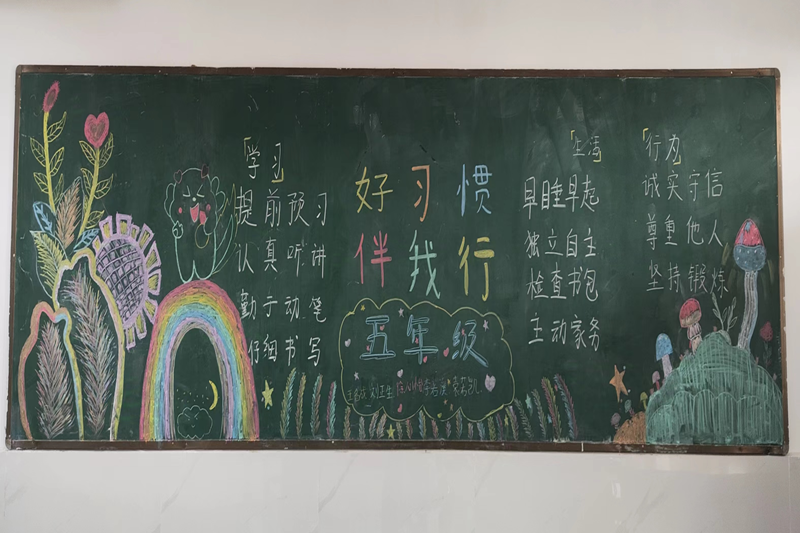 「学习
提前预习
认真听讲
勤于动笔
仔细书写
好习惯
伴我行
五年级
「生活
早睡早起
独立自主
检查书包
主动家务
「行为
诚实守信
尊重他人
坚持锻炼